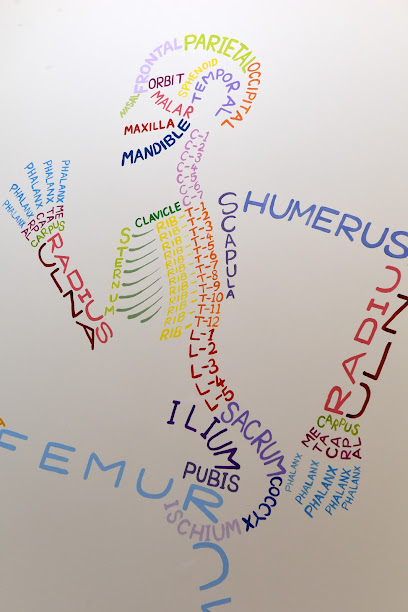 PARIETAL
FRONTAL
OCCIPITAL
SPHENOID
ORBIT
TEMPORAL
NASAL
MALAR
MAXILLA
MANDIBLE
C-1
C-2
C-3
C-4
C-5
C-6
C-7
PHALANX
PHALANX
PHALANX
PHALANX
PHALANX
META
CARPAL
CARPUS
RADIUS
ULNA
CLAVICLE
STERNUM
SCAPULA
HUMERUS
RIB
RIB
RIB
RIB
RIB
RIB
RIB
RIB
RIB
RIB
RIB
RIB
T-1
T-2
T-3
T-4
T-5
T-6
T-7
T-8
T-9
T-10
T-11
T-12
L-1
L-2
L-3
L-4
L-5
RADIU
ULN
CARPUS
META
CARPAL
PHALANX
PHALANX
PHALANX
PHALANX
PHALANX
ILIUM
SACRUM
PUBIS
COCCYX
ISCHIUM
FEMUR